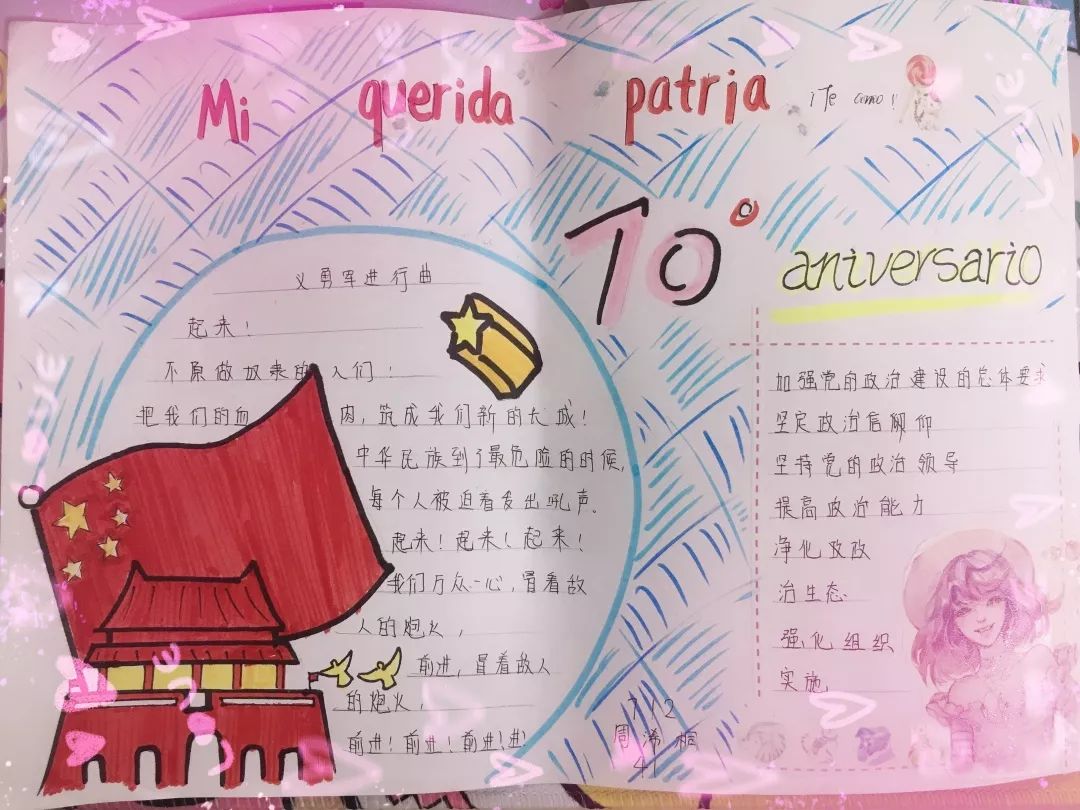 Mi querida patria ¡Te amo!
70° aniversario
义勇军进行曲
起来！
不原做奴隶的人们！
把我们的血内，筑成我们新的长城！
中华民族到了最危险的时候，
每个人被迫着发出吼声。
起来！起来！起来！
我们万众一心，冒着敌
人的炮火，
前进，冒着敌人
的炮火，
前进！前进！前进！进！
加强党的政治建设的总体要求
坚定政治信仰
坚持党的政治领导
提高政治能力
净化政政
治生态
强化组织
实施
7/2
周浠桐
41